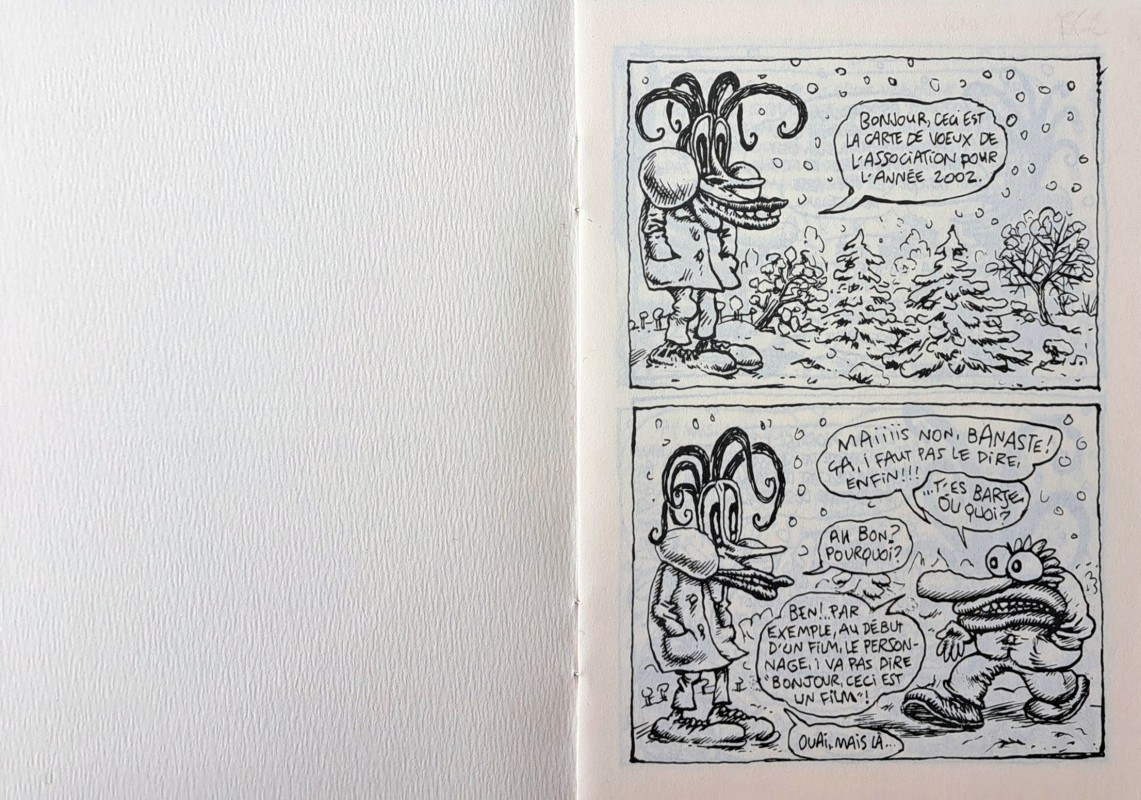 BONJOUR, CECI EST
LA CARTE DE VOEUX DE
L'ASSOCIATION POUR
L'ANNÉE 2002.
MAIIIIS NON, BANASTE!
ÇA, I FAUT PAS LE DIRE,
ENFIN!!!
...T'ES BARJE,
OU QUOI?
AH BON?
POURQUOI?
BEN!.. PAR
EXEMPLE, AU DÉBUT
D'UN FILM, LE PERSON-
NAGE, I VA PAS DIRE
"BONJOUR, CECI EST
UN FILM"!
OUAI, MAIS LÀ...